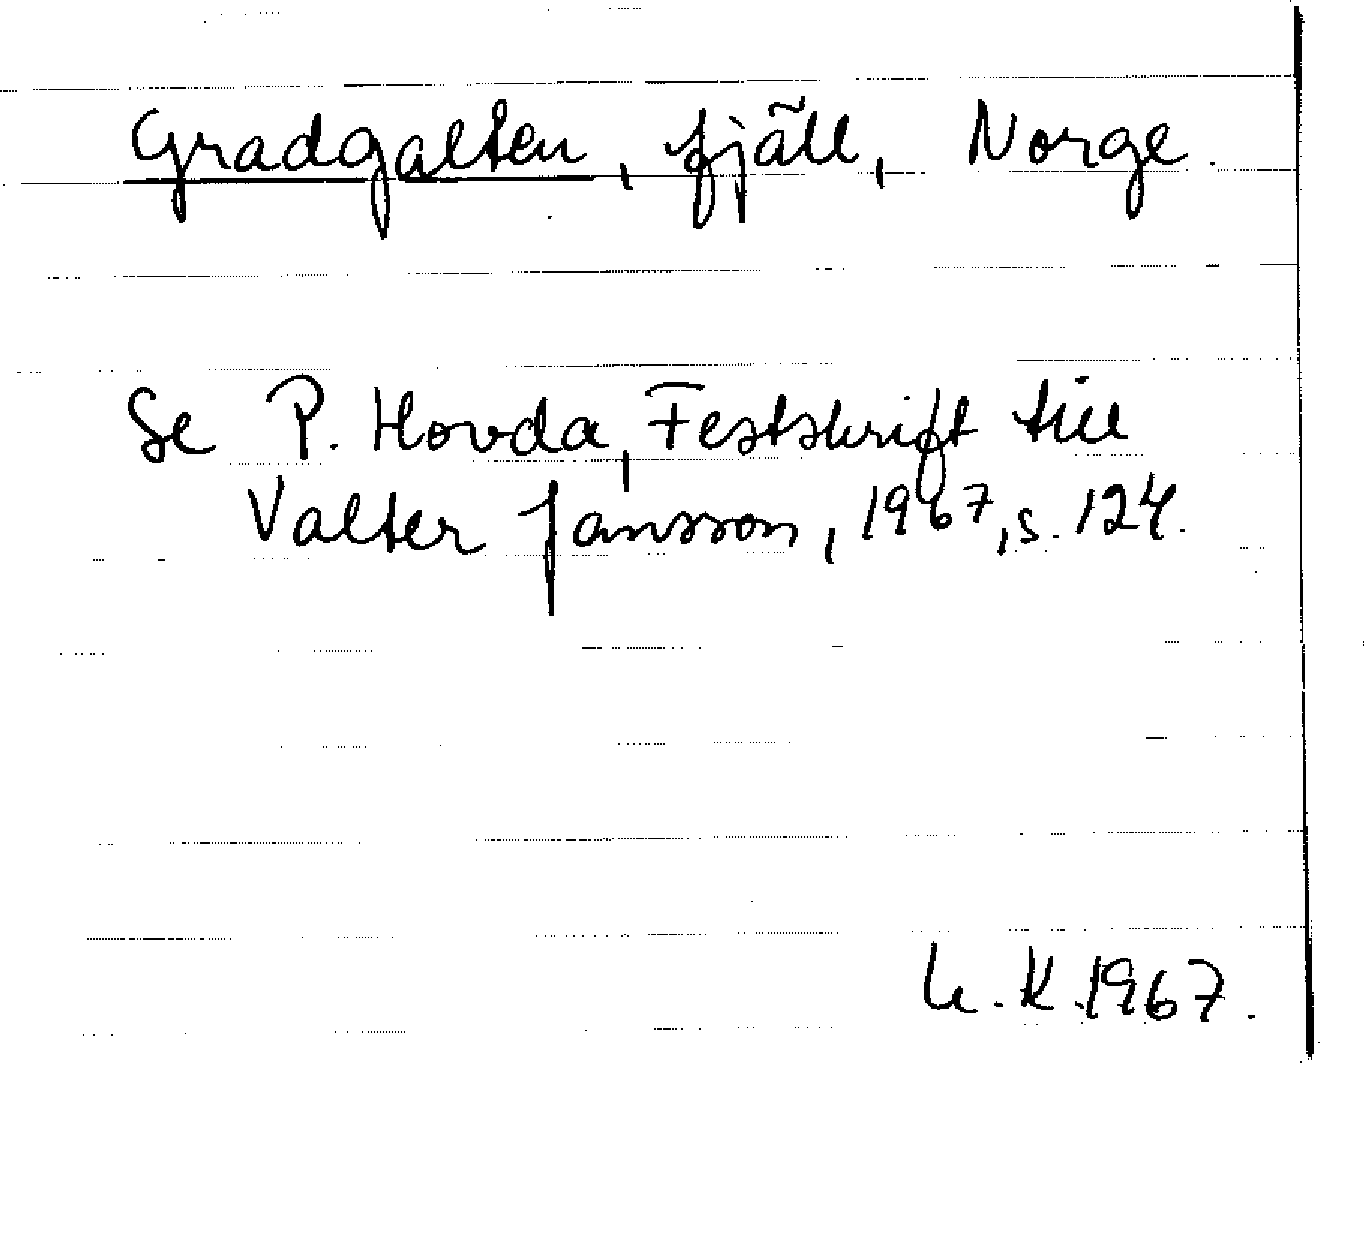 Gradgalten, fjäll, Norge.
Se P. Hovda, Festskrift till
Valter Jansson, 1967, s. 124.
K. 1967.